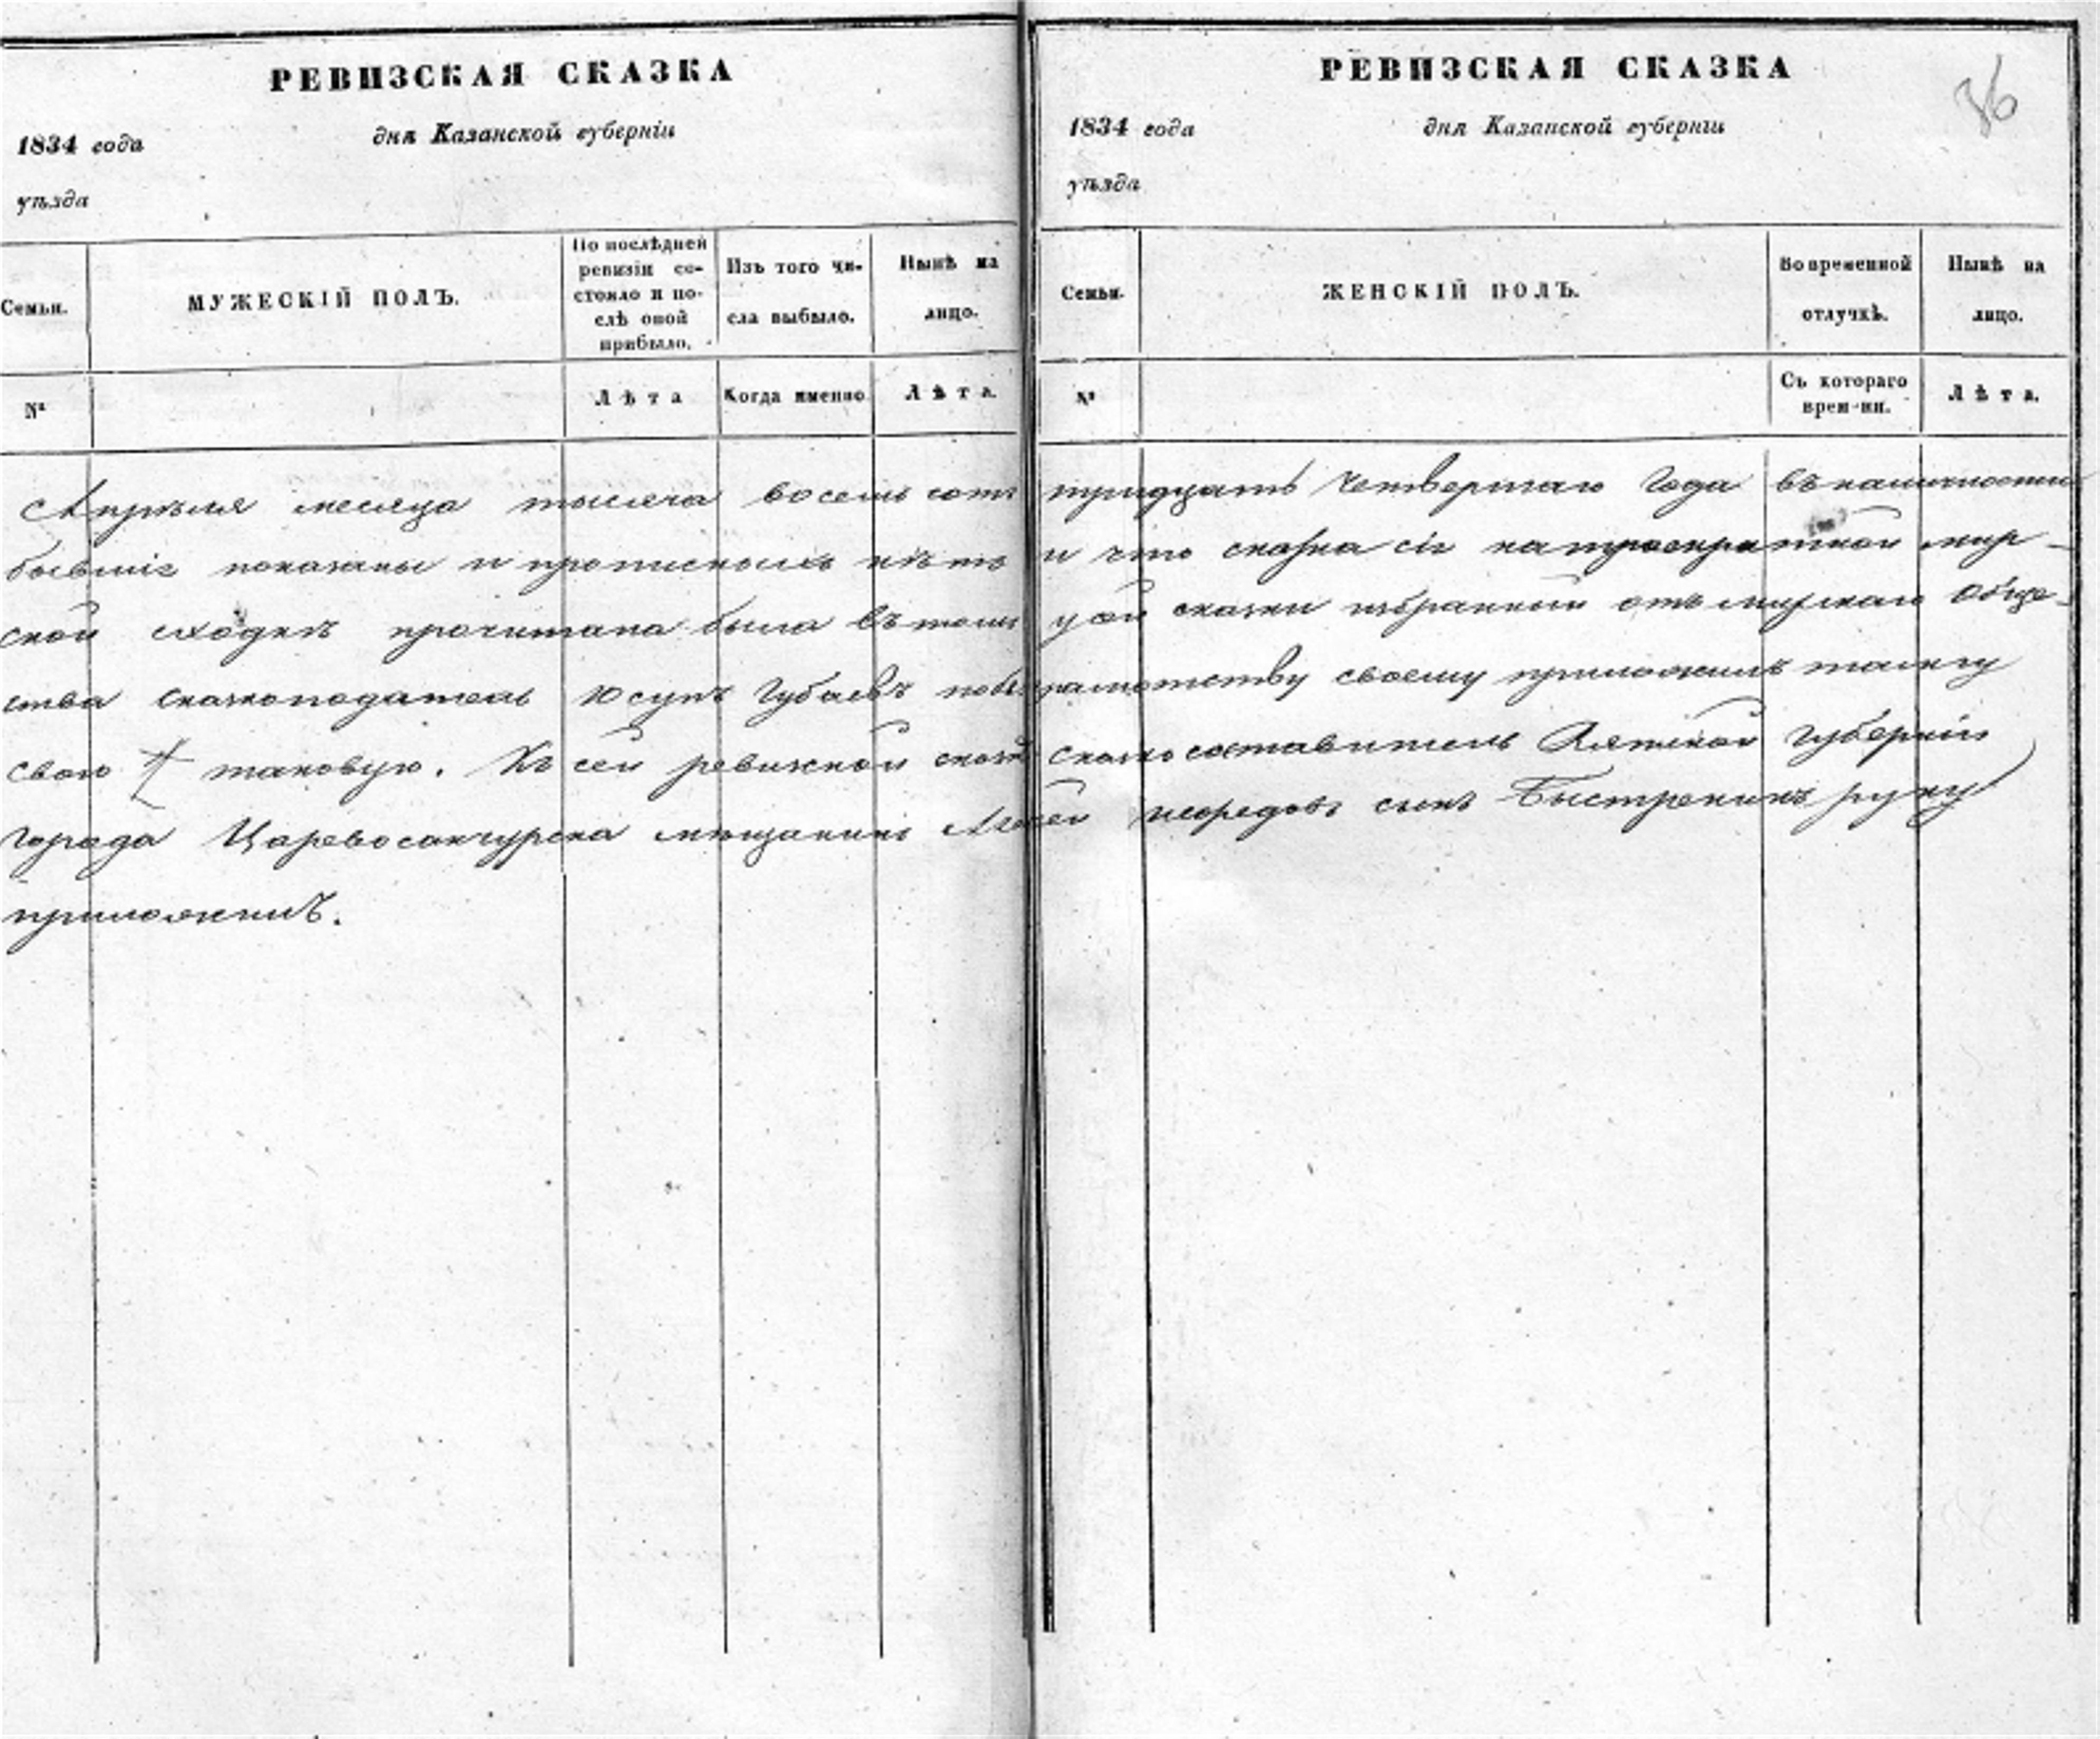 РЕВИЗСКАЯ СКАЗКА
1834 года
дня Казанской губерніи
уѣзда
Семьи.
МУЖЕСКІЙ ПОЛЪ.
По послѣдней
ревизіи со-
стояло и по-
слѣ оной
прибыло.
Изъ того чи-
сла выбыло.
Нынѣ на
лицо.
№
Лѣта
Когда именно
Лѣта.
РЕВИЗСКАЯ СКАЗКА
36
1834 года
дня Казанской губерніи
уѣзда
Семьи.
ЖЕНСКІЙ ПОЛЪ.
Во временной
отлучкѣ.
Нынѣ на
лицо.
№
Съ котораго
врем-ни.
Лѣта.
Апрѣля месяца тысяча восемь сотъ тридцать четвертаго года въ наличности
бывшіе показаны и прописныхъ нѣтъ и что сказка сія на троекратной мир-
ской сходкѣ прочитана была въ томъ у сей сказки избранный отъ мирскаго обще-
ства сказкоподатель Юсупъ Губаевъ побезграмотству своему приложилъ тамгу
свою таковую. Къ сей ревизкой сказкѣ сказко составитель Вятской губерніи
города Царевосанчурска мещанинъ сынъ Быстренинъ руку
приложилъ.